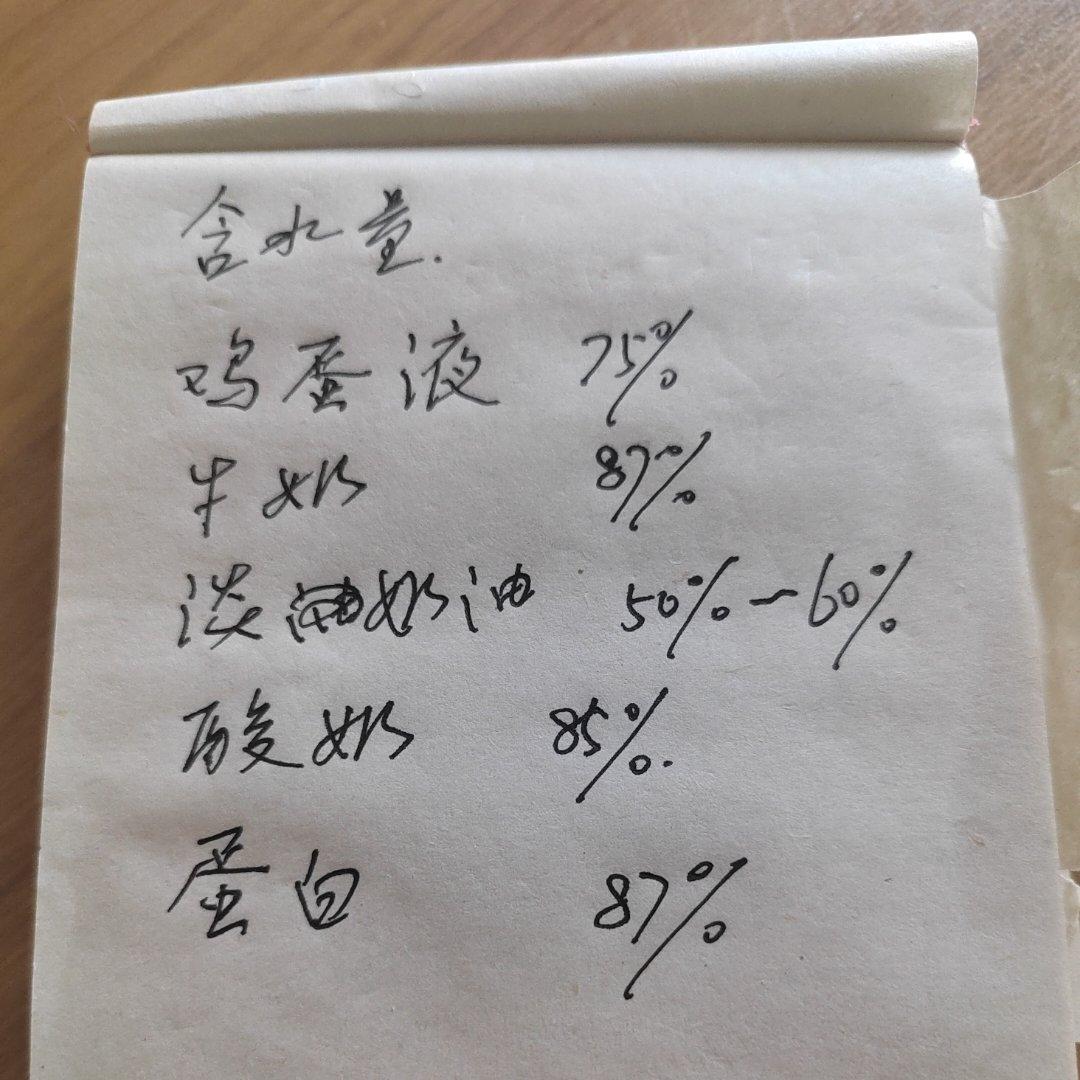 含水量.
鸡蛋液 75%
牛奶 87%
淡奶油 50%-60%
酸奶 85%.
蛋白 87%